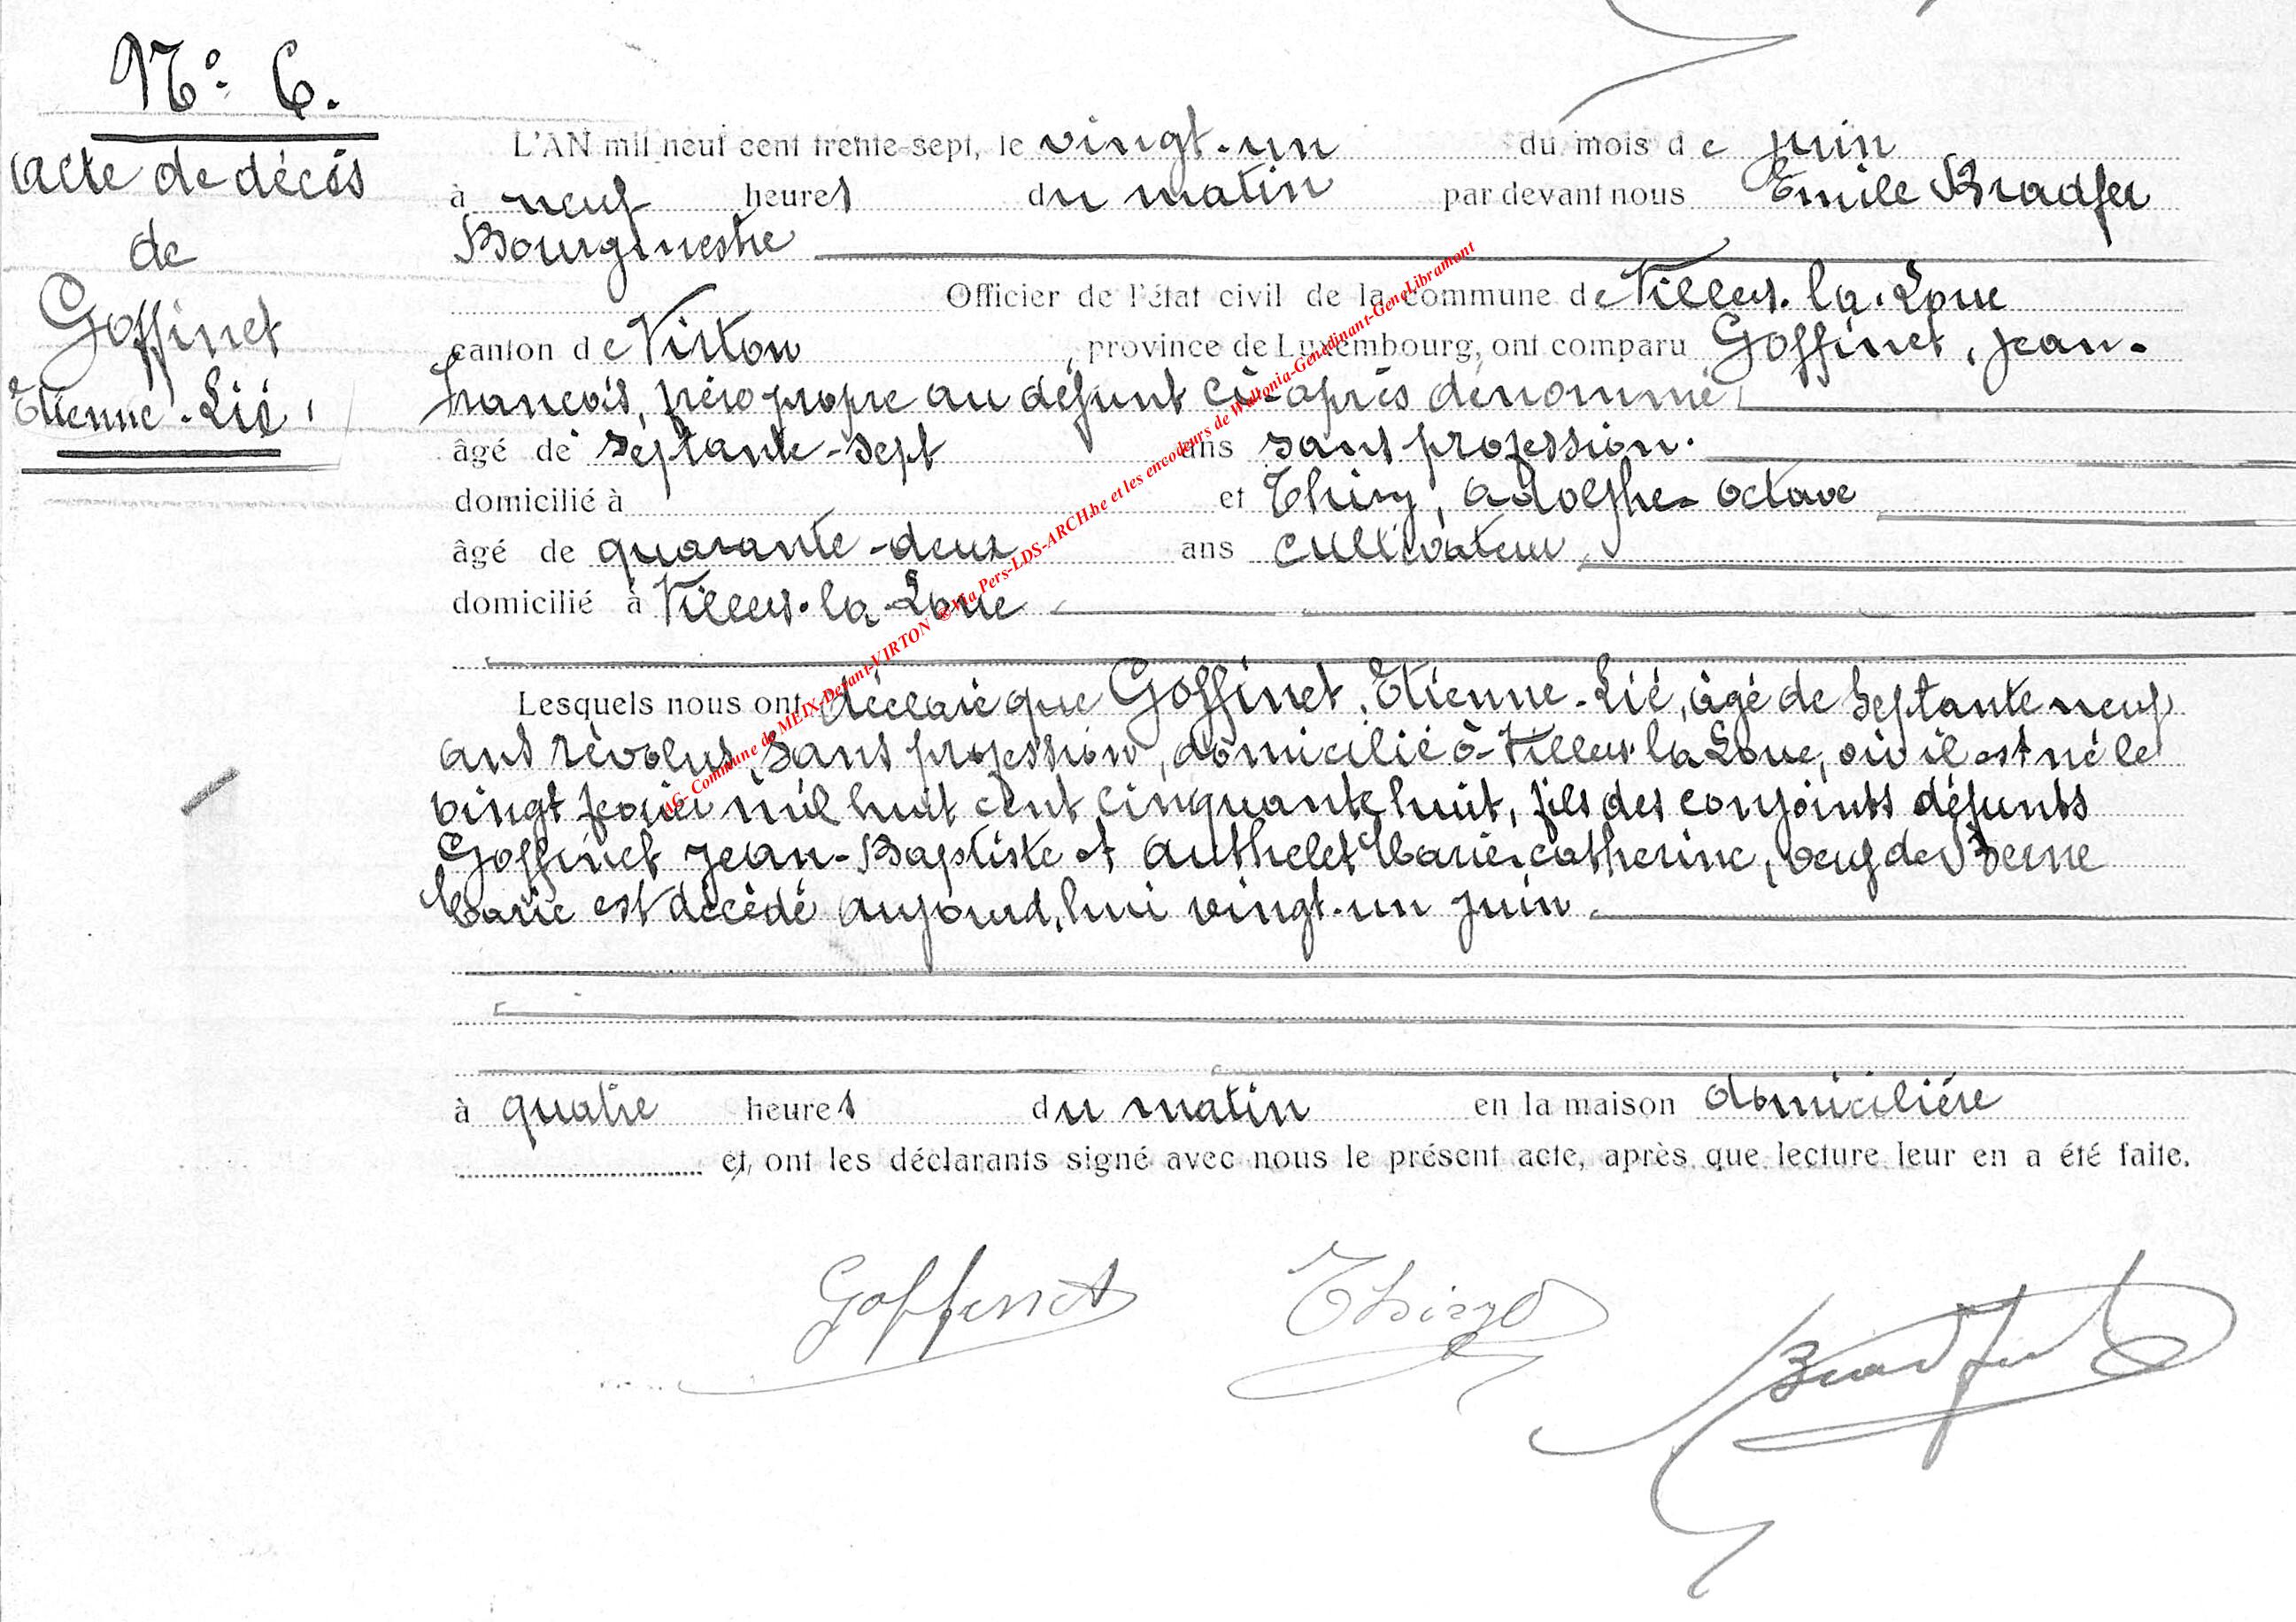 N° 6.
Acte de décès
de
Goffinet
Etienne-Lié,
L'AN mil neuf cent trente-sept, le vingt-un du mois de juin
à neuf heures du matin par devant nous Emile Bradfer
Bourgmestre
Officier de l'état civil de la commune de Villers-la-Loue
canton de Virton, province de Luxembourg, ont comparu Goffinet, Jean-
François, frère propre au défunt ci-après dénommé,
âgé de septante-sept ans sans profession.
domicilié à et Thiry, Adolphe-Octave
âgé de quarante-deux ans cultivateur,
domicilié à Villers-la-Loue
Lesquels nous ont déclaré que Goffinet, Etienne-Lié, âgé de septante neuf
ans révolus, sans profession, domicilié à Villers-la Loue, où il est né le
vingt février mil huit cent cinquante huit, fils des conjoints défunts
Goffinet Jean-Baptiste et Authelet Marie-Catherine, veuf de
Marie est décédé aujourd'hui vingt-un juin.
à quatre heures du matin en la maison domicilière
et, ont les déclarants signé avec nous le présent acte, après que lecture leur en a été faite.
Goffinet Thiry Bradfer
AG- Commune de MEIX-Devant-VIRTON © Via Pers-LDS-ARCH.be et les encodeurs de Wallonia-Genedinant-GeneLibramont